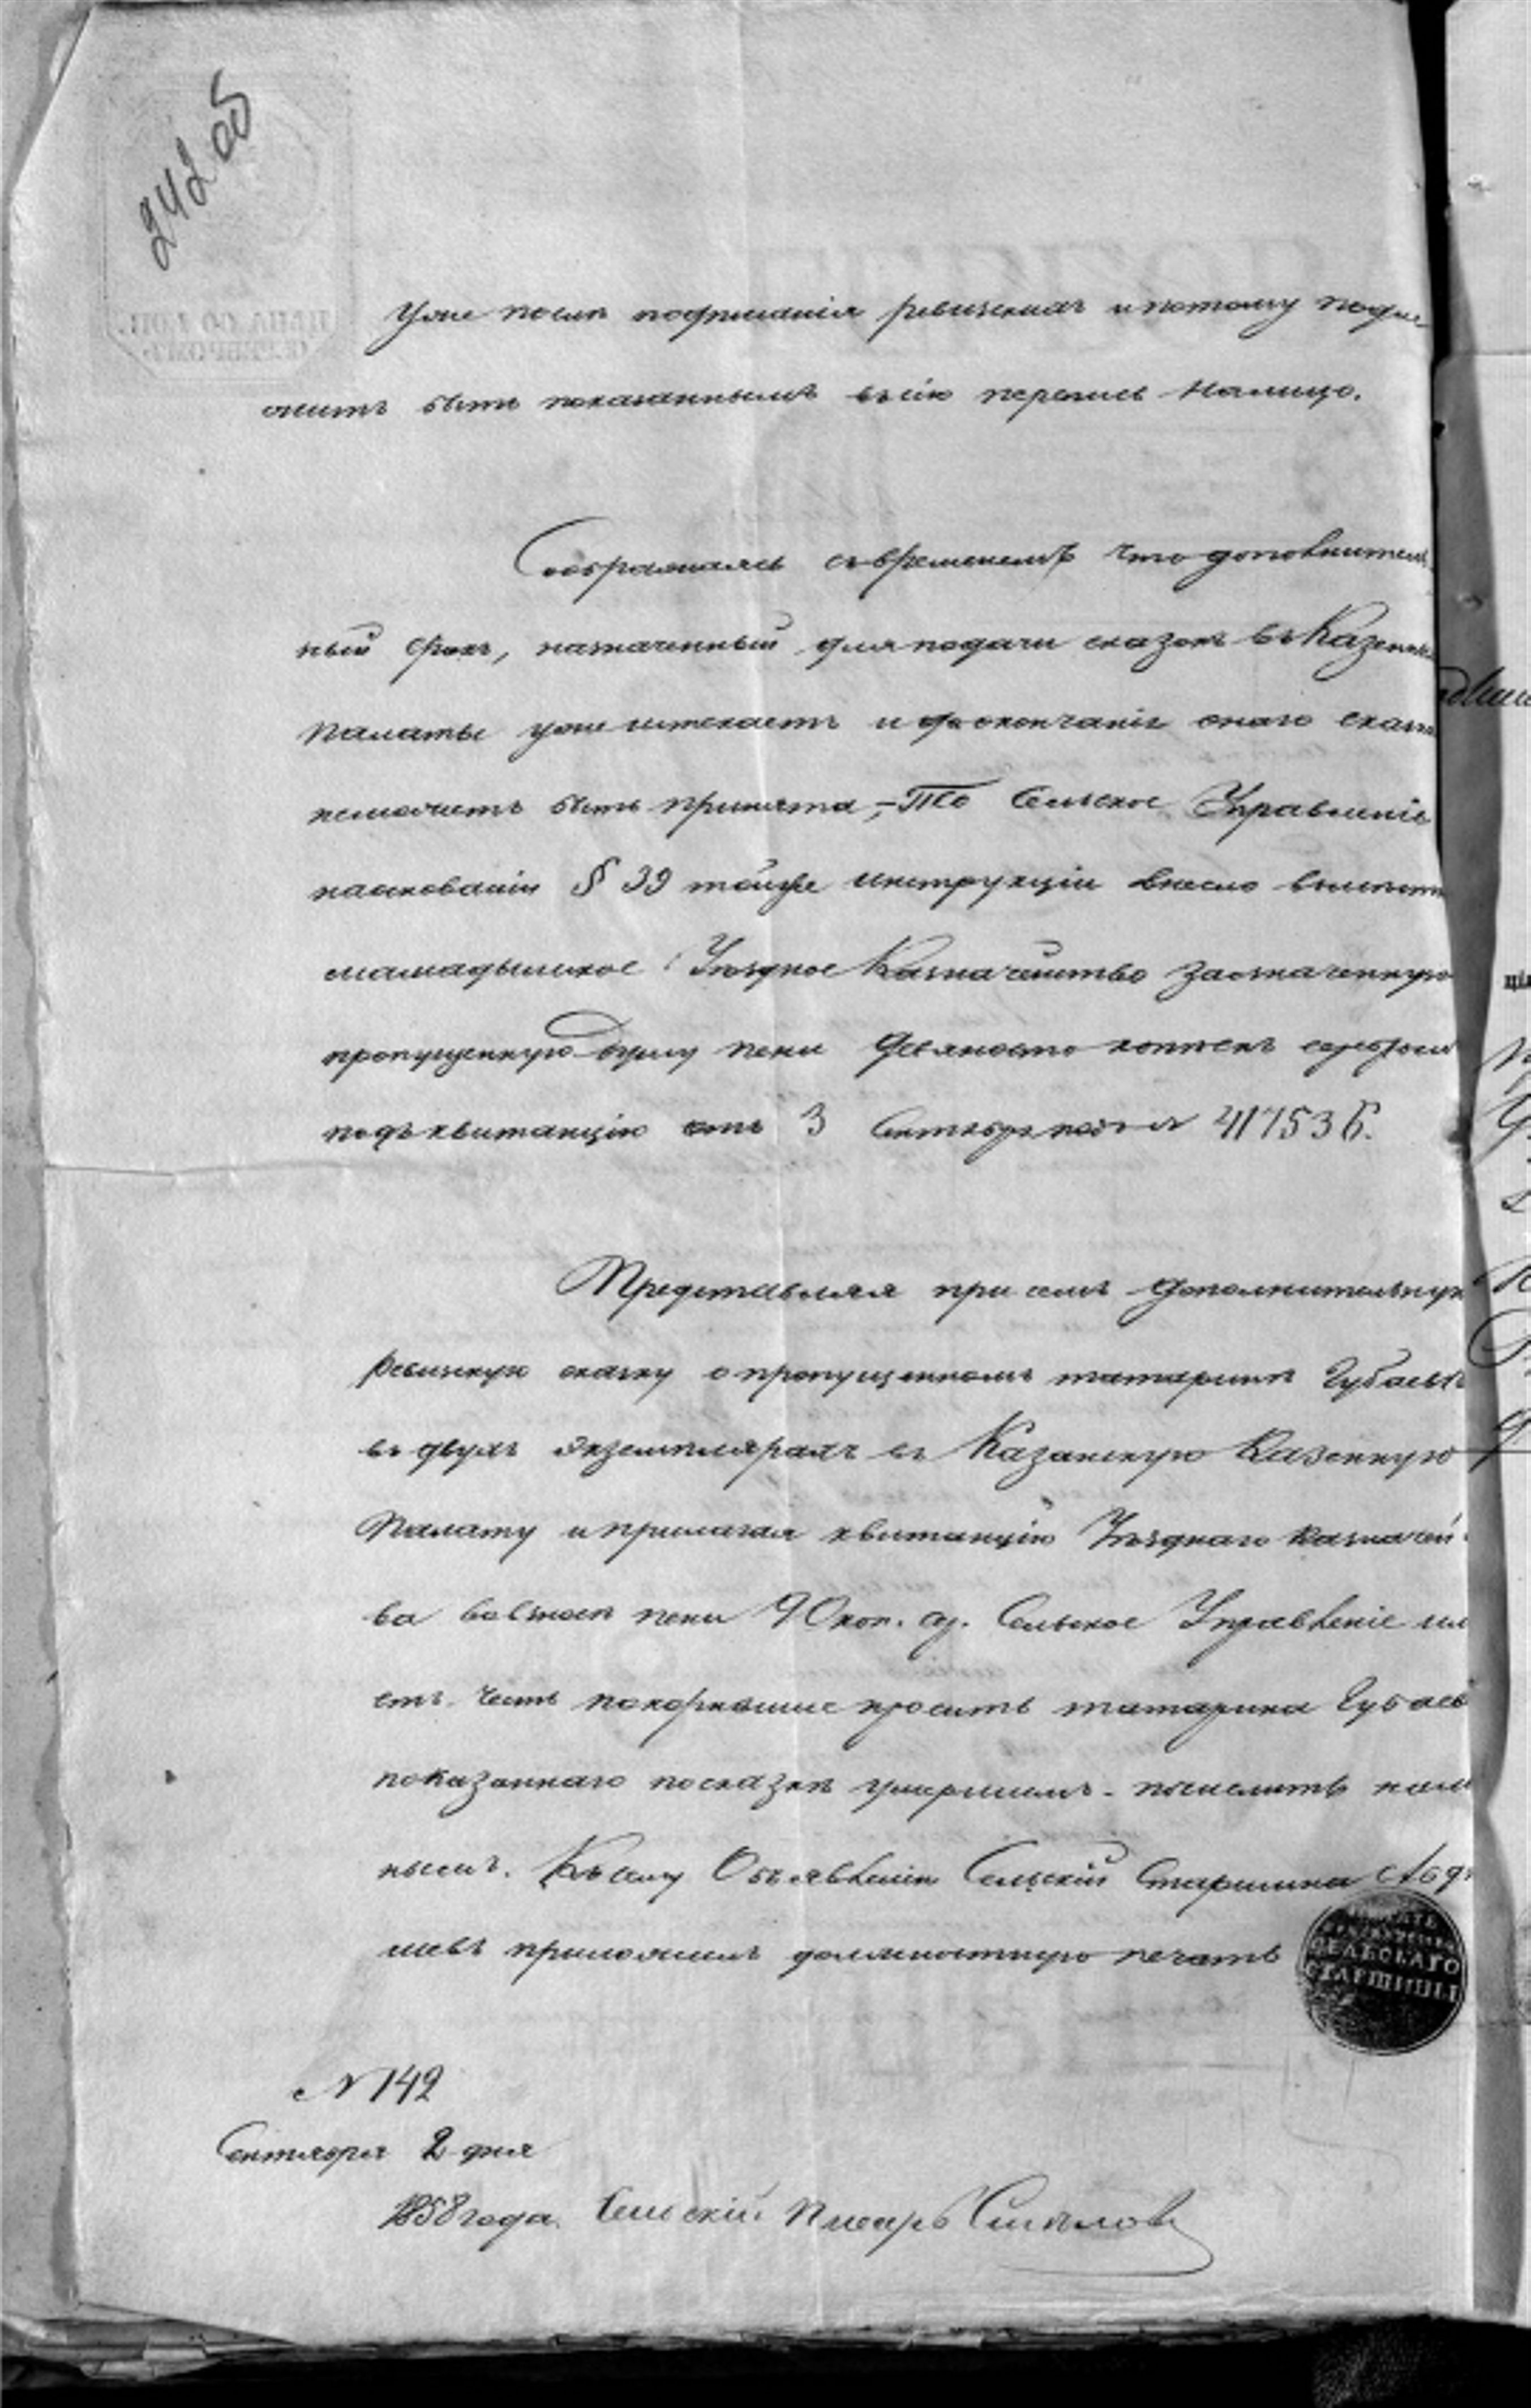 242 об
ЦѢНА 60 КОП.
СЕРЕБРОМЪ.
Уже послѣ подписанія ревизскихъ и потому подле
житъ быть показаннымъ въ сію перепись налицо.
Соображаясь съ временемъ что дополнитель
ный срокъ, назначенный для подачи сказокъ въ Казенныя
Палаты уже истекаетъ и по окончаніи онаго сказка
неможетъ быть принята, – То Сельское Управленіе
наоснованіи § 39 тойже инструкціи внесло вмѣстѣ
мамадышское Уѣздное Казначейство за означенную
пропущенную душу пени девяносто копѣекъ серебромъ
подъ квитанцію отъ 3 Сентября за № 417536.
Представляя при семъ дополнительную
ревизскую сказку о пропущенномъ татаринѣ Губаевѣ
въ двухъ экземплярахъ въ Казанскую Казенную
Палату и прилагая квитанцію Уѣзднаго Казначей
ва во взносѣ пени 90 коп. ср. Сельское Управленіе имѣ
етъ честь покорнѣйше просить татарина Губаев
показаннаго по сказкѣ умершимъ - почислить налич
нымъ. Къ сему Объявленію Сельскій Старшина Абд
шевъ приложилъ должностную печать
СЕЛЬСКАГО
СТАРШИНЫ
№ 142
Сентября 2 дня
1858 года. Сельскій Писарь